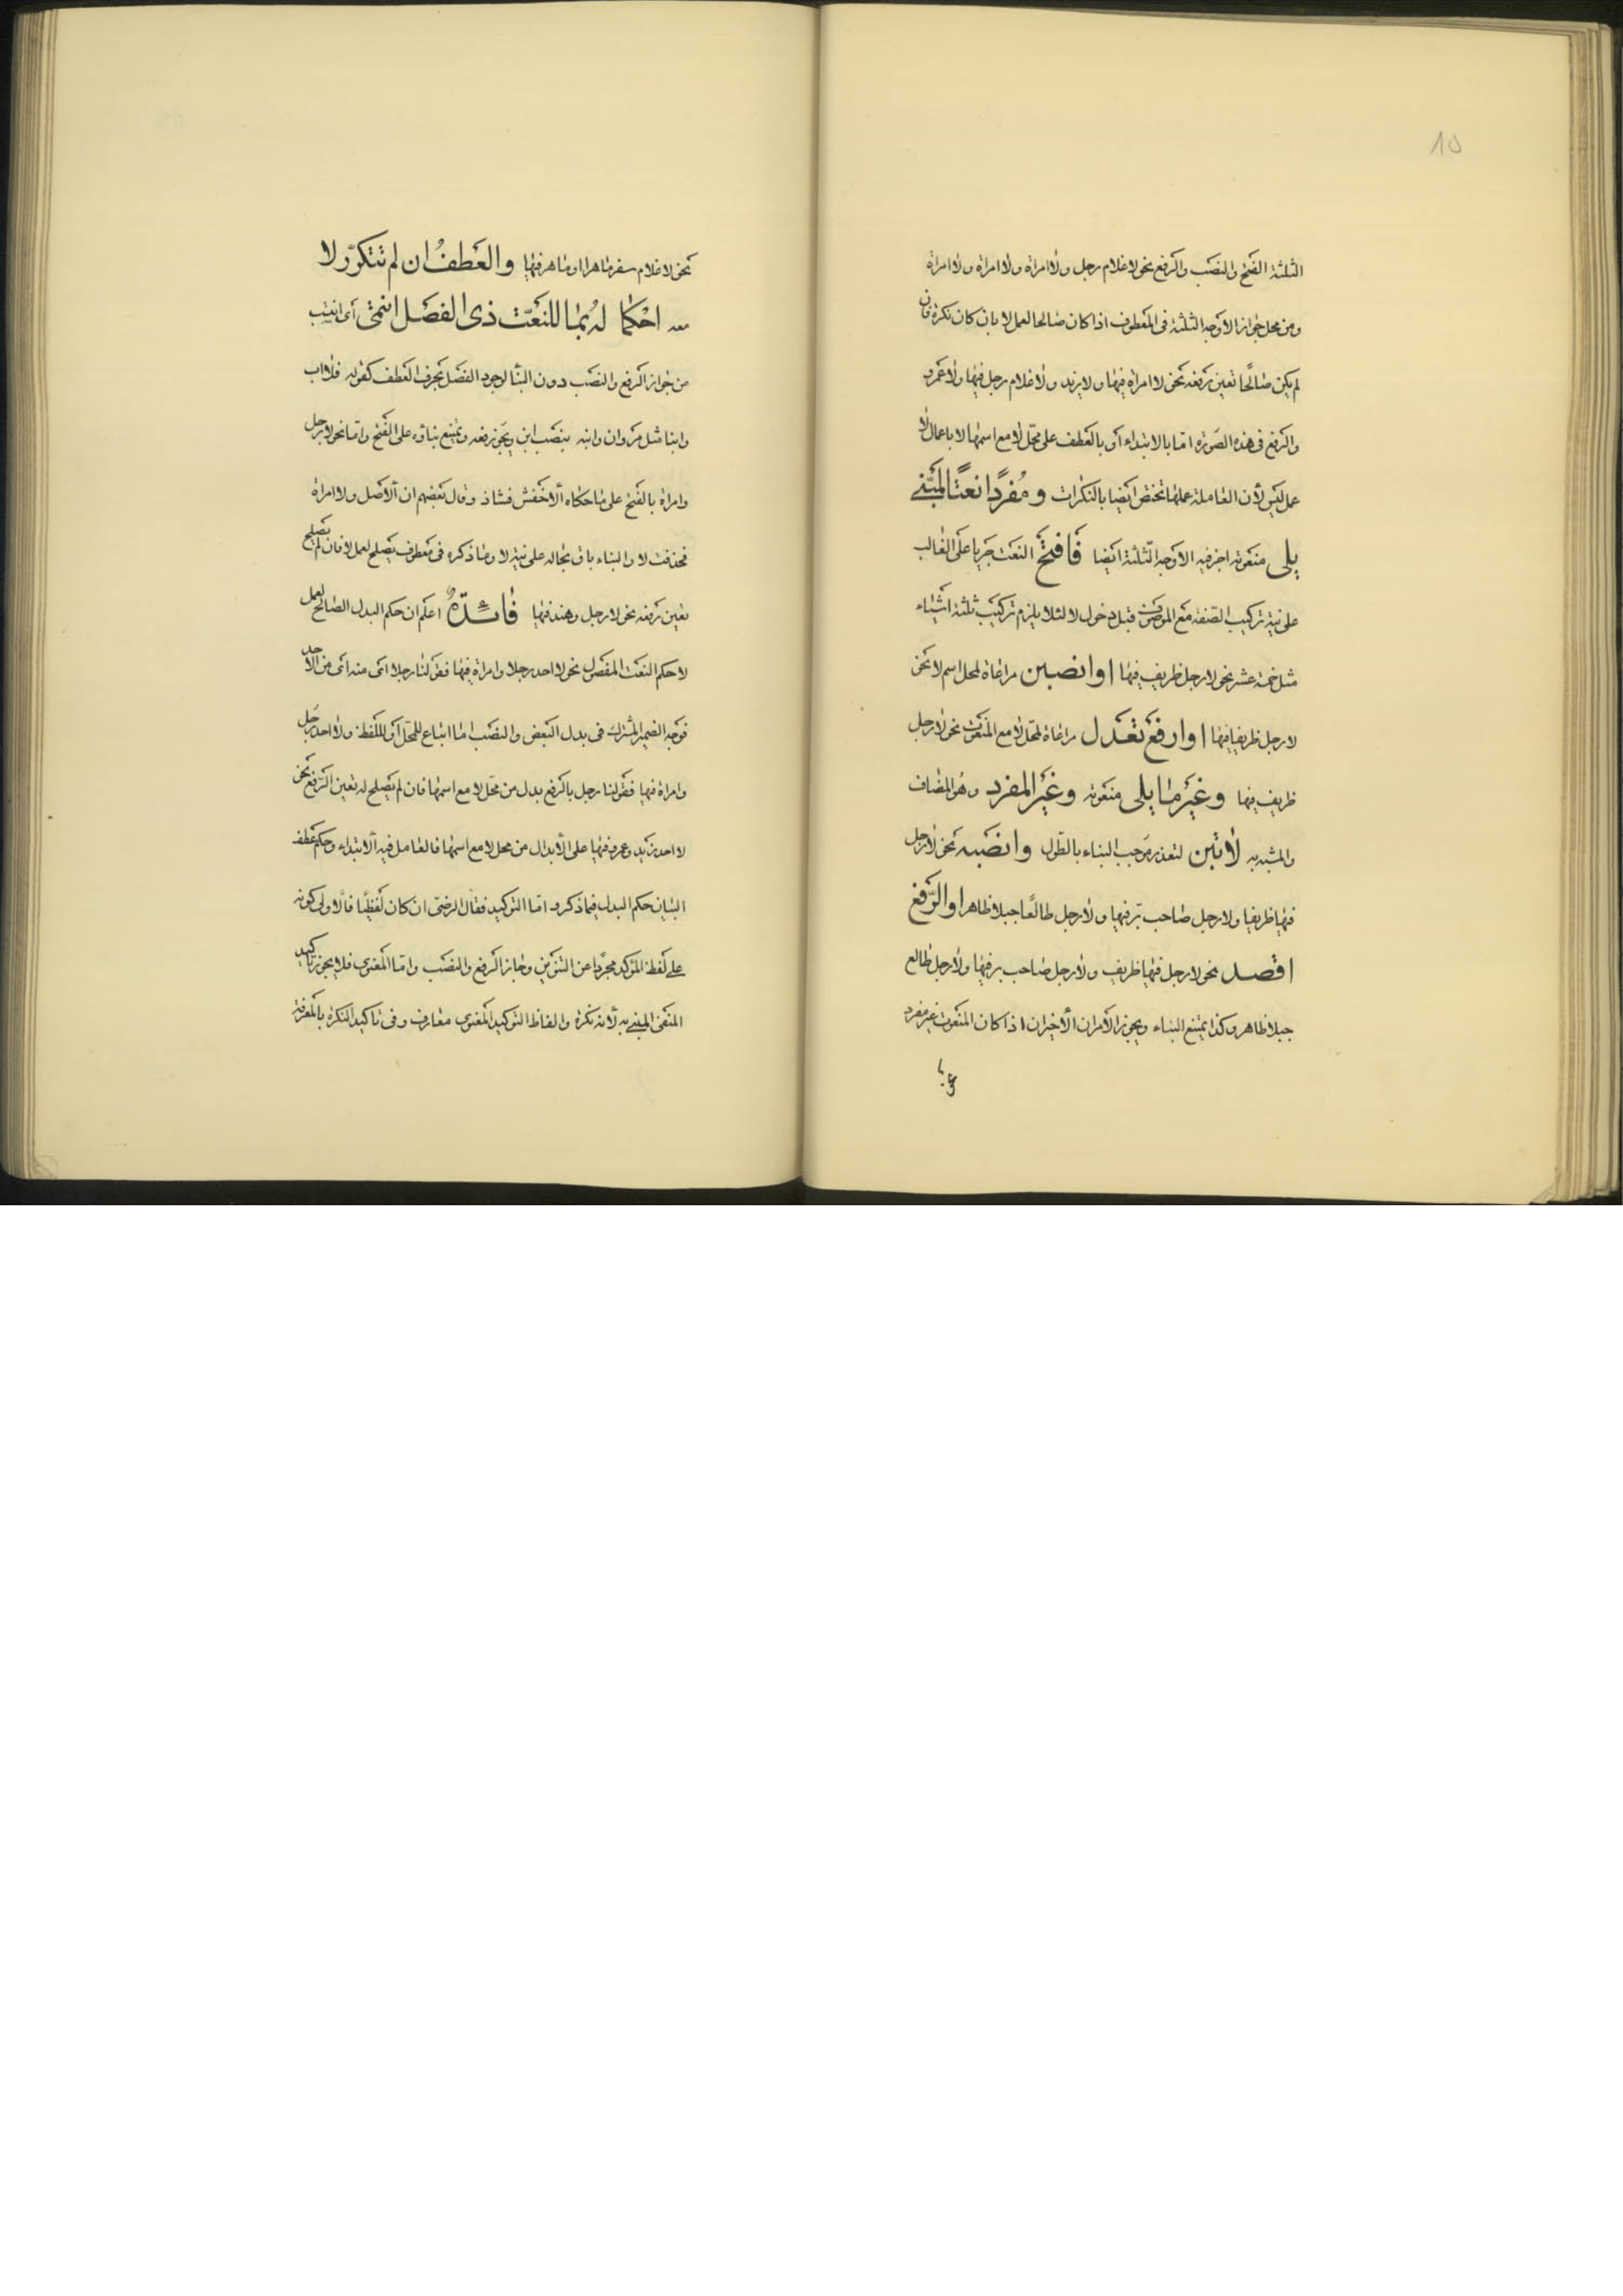 ١٥
الثلثة الفتح والنصب والرفع نحو لا غلام رجل ولا امراة ولا امراة ولا امراة
ومن محل جواز الاوجه الثلثة فى المعطوف اذا كان صالحا لعمل لا بان كان نكرة فان
لم يكن صالحًا تعين رفعه نحو لا امراة فيها ولا زيد ولا غلام رجل فيها ولا عمرو
والرفع فى هذه الصورة امّا بالابتداء او بالعطف على محلّ لا مع اسمها لا باعمال لا
عمل ليس لأن العاملة عملها تختص ايضا بالنكرات ومُفردًا نعتًا لمبنىّ
يلى منعوته اجز فيه الاوجه الثلثة ايضا فافتح النعت جريا على الغالب
على نية تركيب الصفة مع الموصوف قبل دخول لا لئلا يلزم تركيب ثلثة اشياء
مثل خمسة عشر نحو لا رجل ظريف فيها اوانصبن مراعاة لمحل اسم لا نحو
لا رجل ظريفا فيها اوارفع تعدل مراعاة لمحل لا مع المنعوت نحو لا رجل
ظريف فيها وغير ما يلى منعوته وغير المفرد وهو المضاف
والمشبه به لا تبن لتعذر موجب البناء بالطّول وانصبه نحو لا رجل
فيها ظريفا ولا رجل صاحب برّ فيها ولا رجل طالعًا جبلا ظاهر اوالرّفع
اقصد نحو لا رجل فيها ظريف ولا رجل صاحب بر فيها ولا رجل طالع
جبلا ظاهر وكذا يمتنع البناء ويجوز الأمران الأخيران اذا كان المنعوت غير مفرد
نحو لا غلام سفر ماهرا او ماهر فيها والعطفُ ان لم تتكرّر لا
معه احكما له بما للنعت ذى الفصل انتمى اى انتسب
من جواز الرفع والنصب دون البنا لوجود الفصل بحرف العطف كقوله فلا اب
وابنا مثل مروان وابنه بنصب ابن ويجوز رفعه ويمتنع بناؤه على الفتح وامّا نحو لا رجل
وامراة بالفتح على ما حكاه الأخفش فشاذ وقال بعضهم ان الأصل ولا امراة
فحذفت لا والبناء باق بحاله على نية لا وما ذكره فى معطوف يصلح لعمل لا فان لم يصلح
تعين رفعه نحو لا رجل وهند فيها فائدةٌ اعلم ان حكم البدل الصالح لعمل
لا حكم النعت المفصول نحو لا احد رجلا وامراة فيها فقولنا رجلا اى منه اى من الاحد
فوجه الضمير المشترك فى بدل البعض والنصب امّا اتباع للمحل او لللفظ ولا احد رجل
وامراة فيها فقولنا رجل بالرفع بدل من محلّ لا مع اسمها فان لم يصلح له تعين الرّفع نحو
لا احد زيد وعمرو فيها على الأبدال من محل لا مع اسمها فالعامل فيه الابتداء وحكم عطف
البيان حكم البدل فيما ذكر و امّا التوكيد فقال الرضى ان كان لفظيًا فالأولى كونه
على لفظ المؤكد مجرّدا عن التنوين وجاز الرفع والنصب وامّا المعنوى فلا يجوز تأكيد
المنفى المبنى به لأنه نكرة والفاظ التوكيد المعنوى معارف وفى تاكيد النكرة بالمعرفة